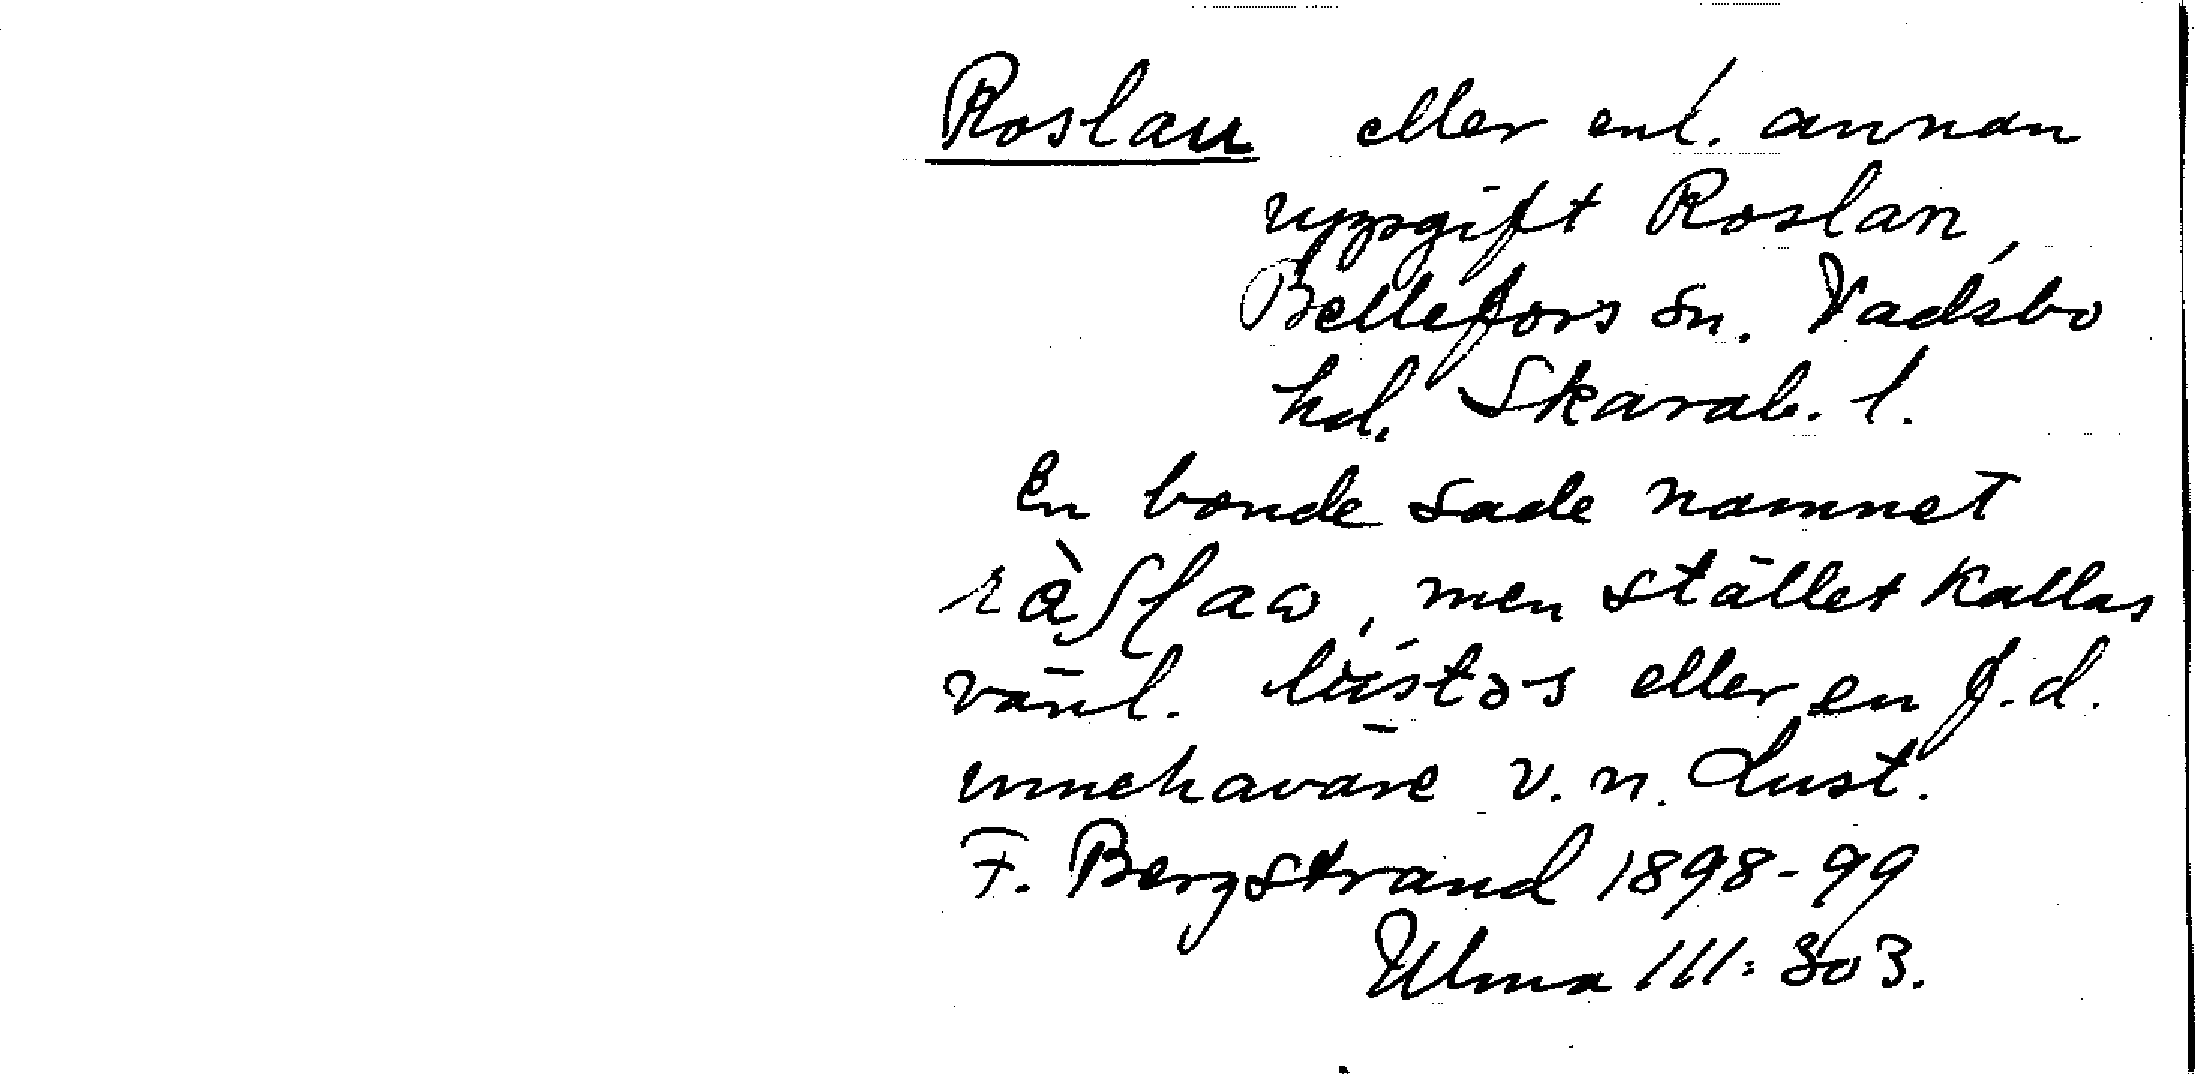 Roslau eller enl. annan
uppgift Roslan,
Bellefors sn. Vadsbo
hd. Skarab. l.
En bonde sade namnet
men stället kallas
vanl. eller en f.d.
innehavare v. n. Lust.
F. Bergstrand 1898-99
Ulma 111:303.